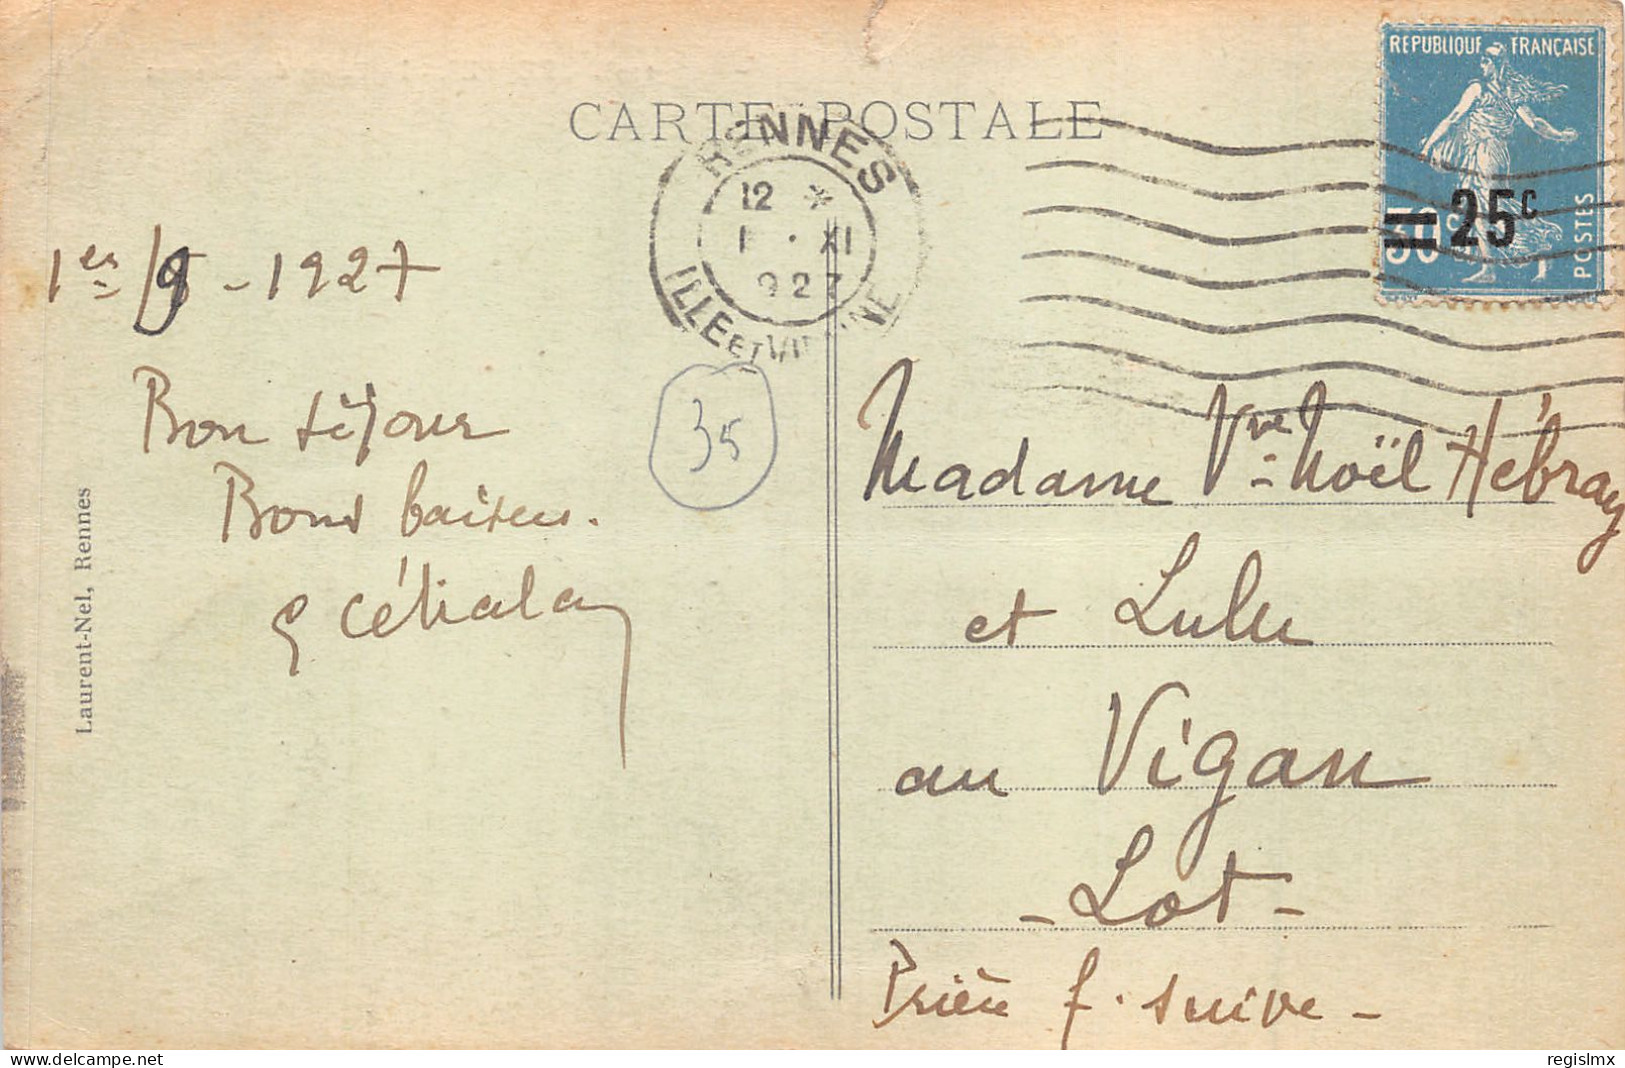 CARTE POSTALE
RENNES
12 *
1 · XI
927
ILLE ET VILAINE
REPUBLIQUE FRANÇAISE
POSTES
30c
25c
1er/9 - 1927
Bon séjour
Bons baisers.
35
Madame Vve Noël Hébray
et Lulu
au Vigan
- Lot -
Prière f. suivre -
Laurent-Nel, Rennes
regislmx